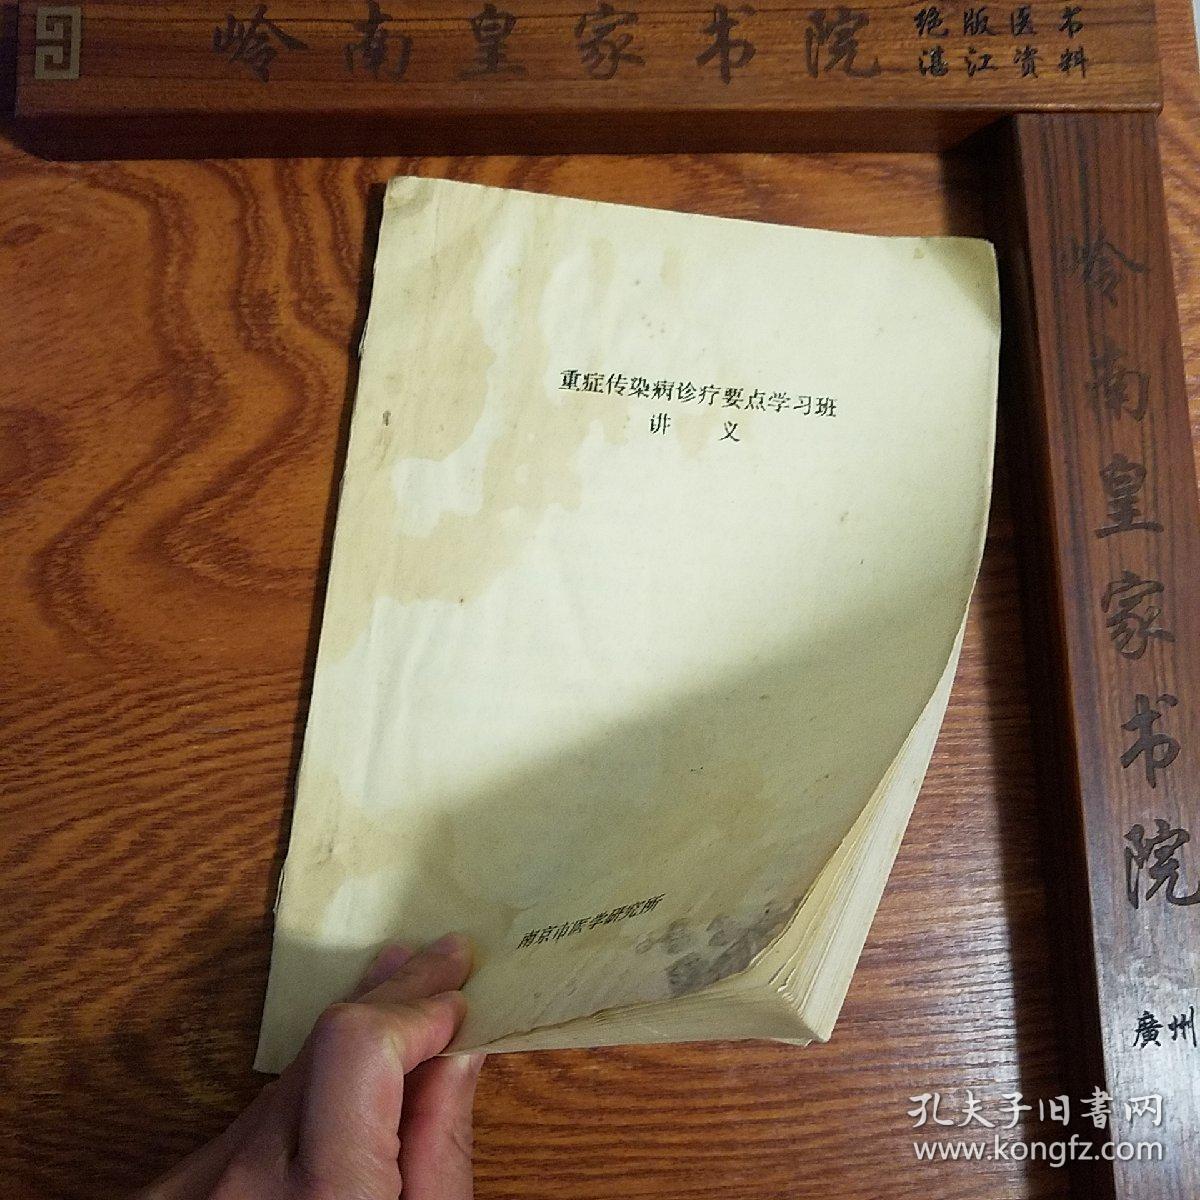 岭南皇家书院
绝版医书
湛江资料
重症传染病诊疗要点学习班
讲 义
南京市医学研究所
岭南皇家书院
廣州
孔夫子旧書网
www.kongfz.com